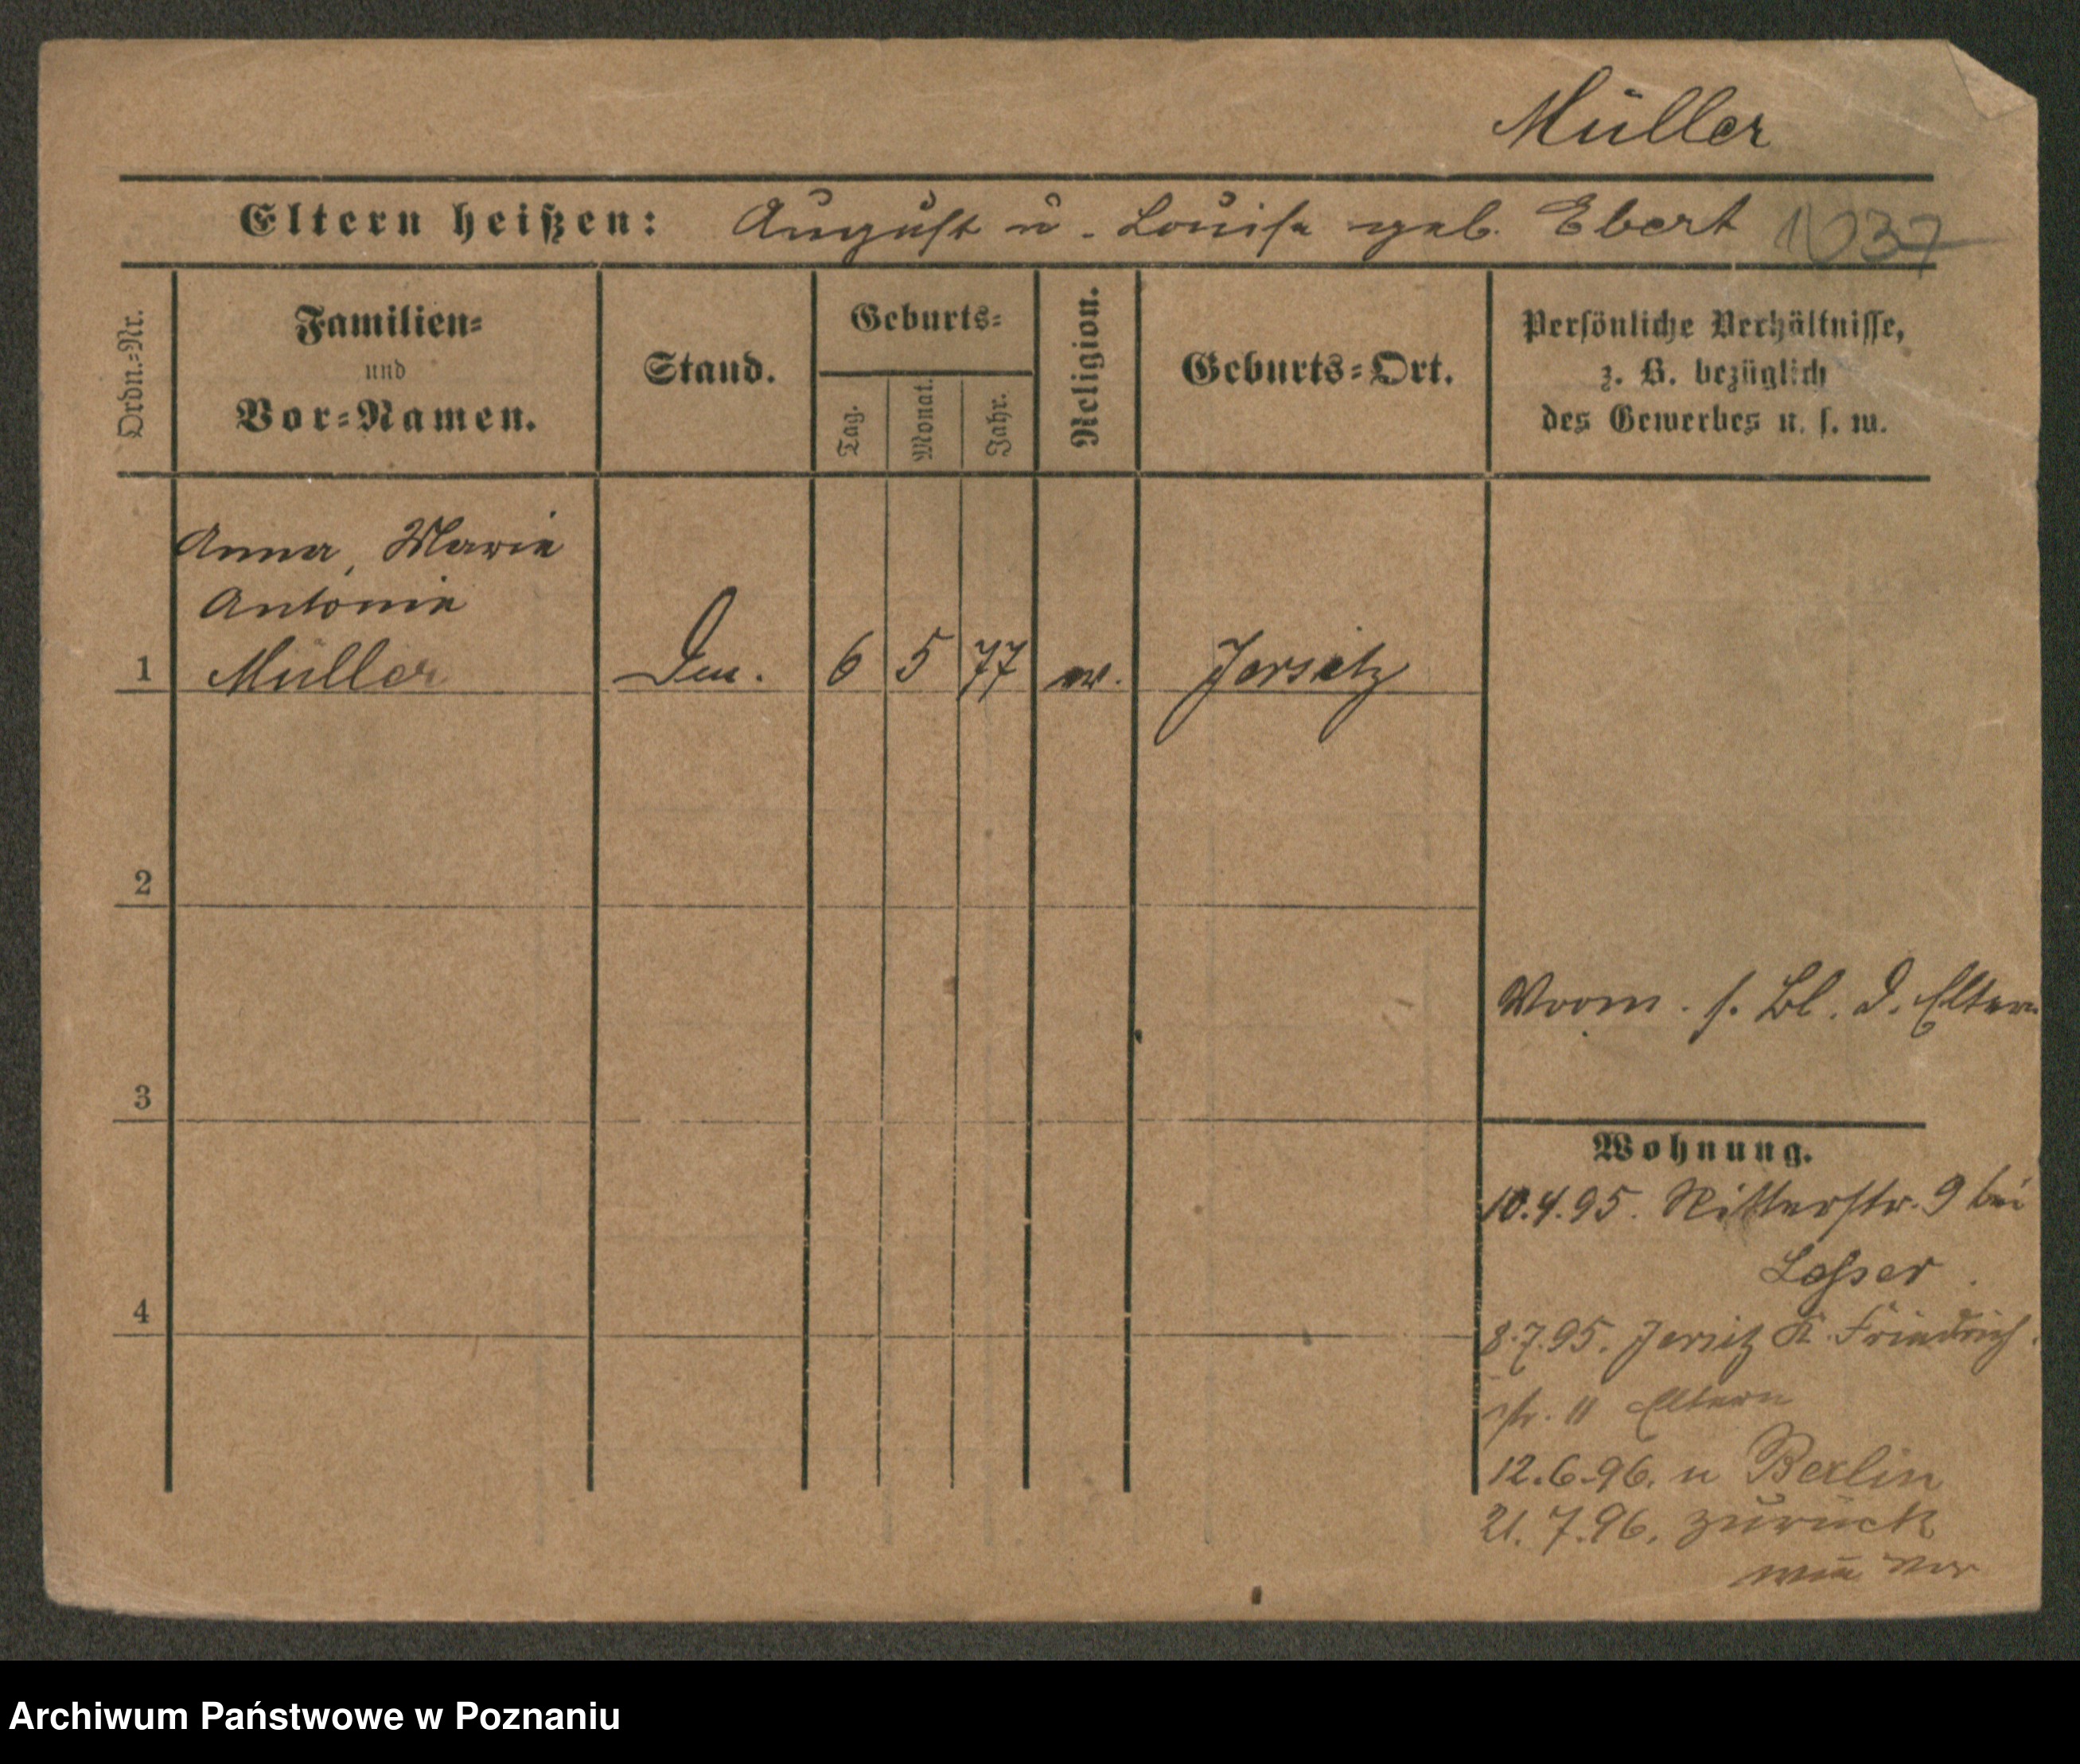 Müller
Eltern heißen: August u. Louise geb. Ebert 1037
Ordn.=Nr.
Familien=
und
Vor=Namen.
Stand.
Geburts=
Tag.
Monat.
Jahr.
Religion.
Geburts=Ort.
Persönliche Verhältnisse,
z. B. bezüglich
des Gewerbes u. s. w.
Anna, Marie
Antonie
1 Müller 6 5 77 Jersitz
2
s. Bl. d. Eltern
3
Wohnung.
10.4.95. Ritterstr. 9 bei
Losser
4
8.7.95. Jersitz K. Friedrich
str. 11 Eltern
12.6.96. n Berlin
21.7.96. zurück
wie vor
Archiwum Państwowe w Poznaniu